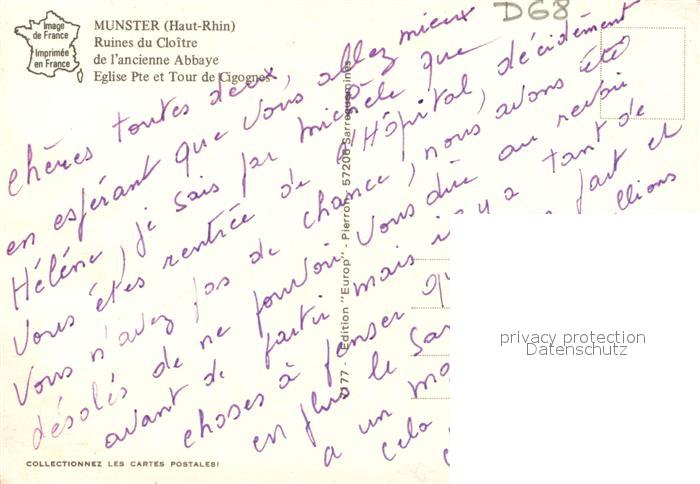 D68
Image
de France
Imprimée
en France
MUNSTER (Haut-Rhin)
Ruines du Cloître
de l'ancienne Abbaye
Eglise Pte et Tour de Cigognes
chères toutes deux,
en espérant que vous allez mieux
Hélène, je sais par michèle que
vous êtes rentrée de l'Hôpital, décidément
vous n'avez pas de chance, nous avons été
désolés de ne pouvoir vous dire au revoir
avant de partir mais il y a tant de
choses à penser fait et
en plus le
a un
cela
3177 - Edition "Europ" - Pierron - 57206 Sarreguemines
COLLECTIONNEZ LES CARTES POSTALES!
privacy protection
Datenschutz